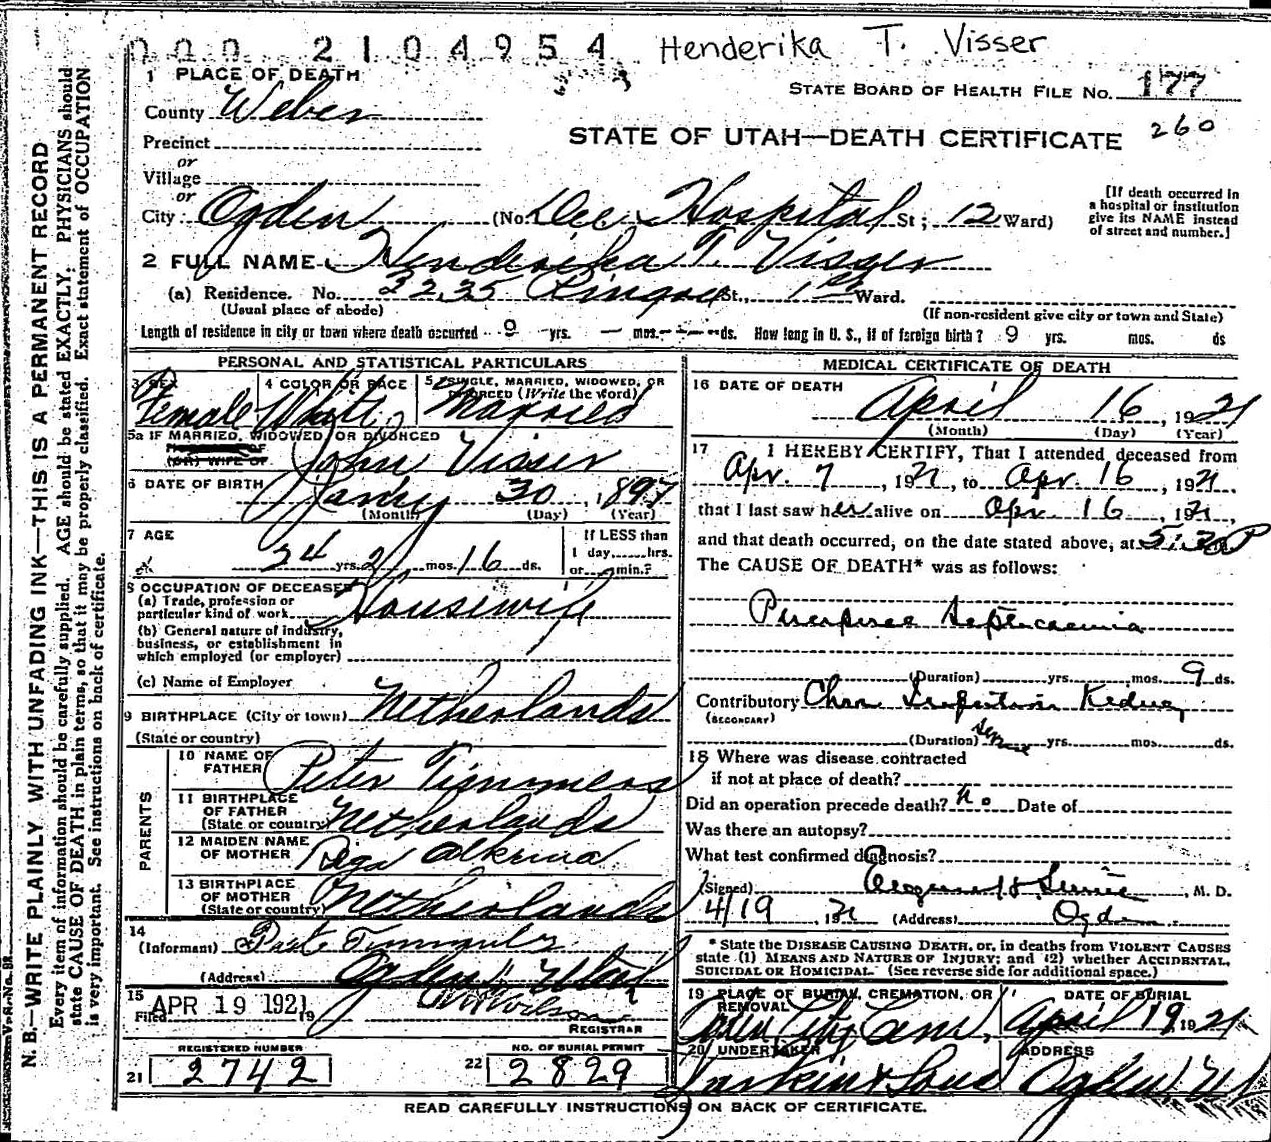 000 2104954 Henderika T. Visser
1 PLACE OF DEATH
STATE BOARD OF HEALTH FILE No. 177
County Weber
STATE OF UTAH—DEATH CERTIFICATE 260
Precinct
or
Village
or
City Ogden (No. Dee Hospital St; 12 Ward)
[If death occurred in
a hospital or institution
give its NAME instead
of street and number.]
2 FULL NAME Henderika T. Visser
(a) Residence. No. 2235 St., 1st Ward.
(Usual place of abode)
(If non-resident give city or town and State)
Length of residence in city or town where death occurred 9 yrs. — mos. — ds. How long in U. S., if of foreign birth? 9 yrs. mos. ds
PERSONAL AND STATISTICAL PARTICULARS
3 SEX
Female
4 COLOR OR RACE
White
5 SINGLE, MARRIED, WIDOWED, OR
DIVORCED (Write the word)
Married
5a IF MARRIED, WIDOWED, OR DIVORCED
(OR) WIFE OF John Visser
6 DATE OF BIRTH 30, 1897
(Month) (Day) (Year)
7 AGE
24 yrs. 2 mos. 16 ds.
If LESS than
1 day......hrs.
or......min.?
8 OCCUPATION OF DECEASED
(a) Trade, profession or
particular kind of work Housewife
(b) General nature of industry,
business, or establishment in
which employed (or employer)
(c) Name of Employer
9 BIRTHPLACE (City or town) Netherlands
(State or country)
PARENTS
10 NAME OF
FATHER Peter Timmers
11 BIRTHPLACE
OF FATHER
(State or country) Netherlands
12 MAIDEN NAME
OF MOTHER
13 BIRTHPLACE
OF MOTHER
(State or country) Netherlands
14
(Informant)
(Address) Ogden Utah
15
Filed APR 19 1921 19
REGISTRAR
REGISTERED NUMBER
21 2742
NO. OF BURIAL PERMIT
22 2829
MEDICAL CERTIFICATE OF DEATH
16 DATE OF DEATH
April 16, 1921
(Month) (Day) (Year)
17 I HEREBY CERTIFY, That I attended deceased from
Apr. 7, 1921, to Apr. 16, 1921.
that I last saw her alive on Apr. 16, 1921,
and that death occurred, on the date stated above, at 5:30 P
The CAUSE OF DEATH* was as follows:
Septicaemia
(Duration) yrs. mos. 9 ds.
Contributory
(SECONDARY)
(Duration) yrs. mos. ds.
18 Where was disease contracted
if not at place of death?
Did an operation precede death? no Date of
Was there an autopsy?
What test confirmed diagnosis?
(Signed) M. D.
4/19 1921 (Address) Ogden
* State the DISEASE CAUSING DEATH, or, in deaths from VIOLENT CAUSES
state (1) MEANS AND NATURE OF INJURY; and (2) whether ACCIDENTAL,
SUICIDAL OR HOMICIDAL. (See reverse side for additional space.)
19 PLACE OF BURIAL, CREMATION, OR
REMOVAL
Ogden City Cem.
DATE OF BURIAL
April 19, 1921
20 UNDERTAKER
Larkin & Sons
ADDRESS
Ogden, Ut
READ CAREFULLY INSTRUCTIONS ON BACK OF CERTIFICATE.
N. B.—WRITE PLAINLY WITH UNFADING INK—THIS IS A PERMANENT RECORD
Every item of information should be carefully supplied. AGE should be stated EXACTLY. PHYSICIANS should
state CAUSE OF DEATH in plain terms, so that it may be properly classified. Exact statement of OCCUPATION
is very important. See instructions on back of certificate.